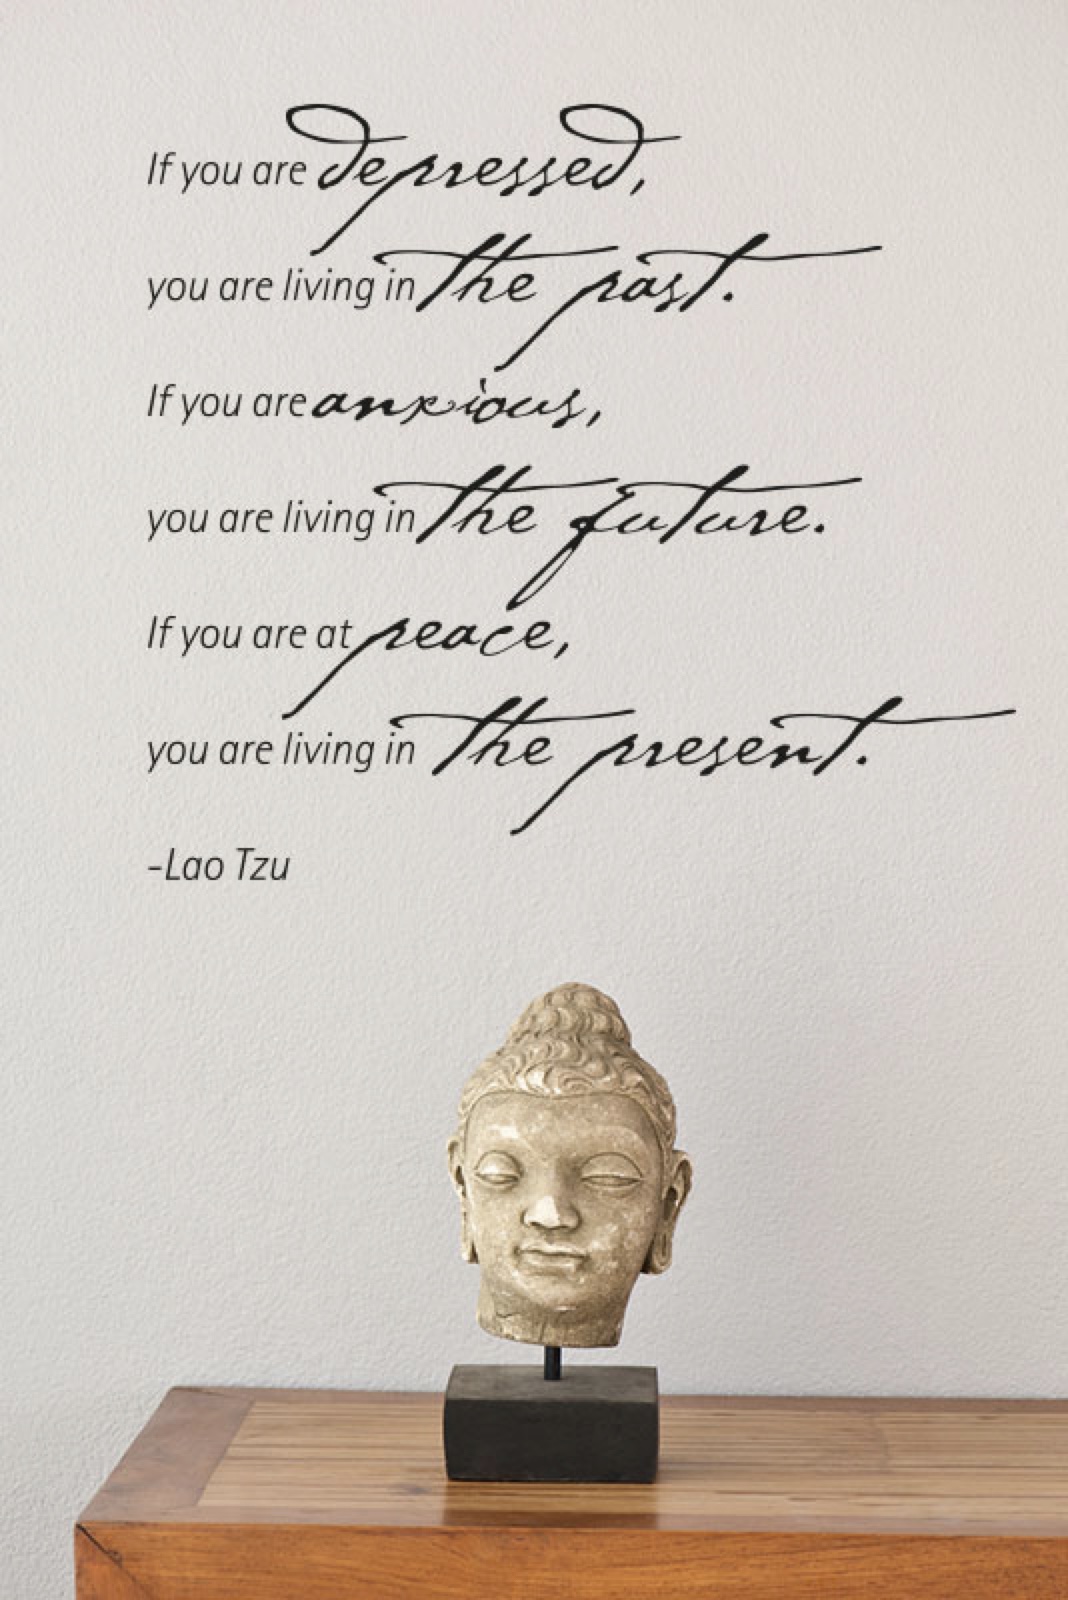 If you are depressed,
you are living in the past.
If you are anxious,
you are living in the future.
If you are at peace,
you are living in the present.
-Lao Tzu